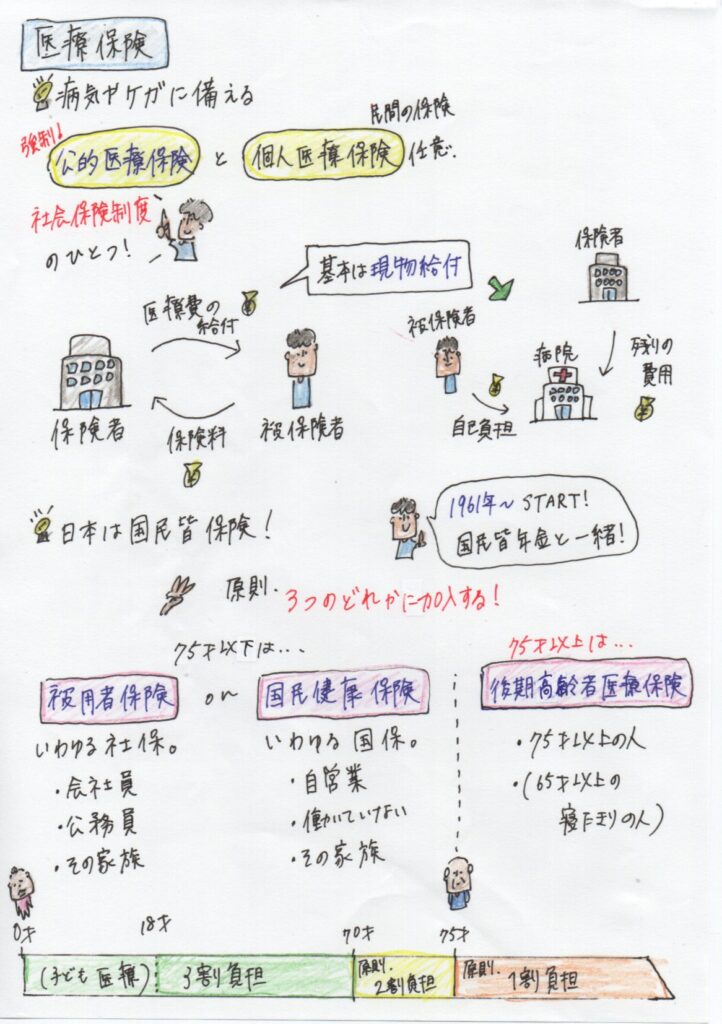 医療保険
病気やケガに備える
民間の保険
強制!
公的医療保険 と 個人医療保険 任意.
社会保険制度
のひとつ!
基本は現物給付
医療費の
給付
保険者
被保険者
保険料
¥
保険者
被保険者
病院
残りの
費用
¥
自己負担
日本は国民皆保険!
1961年~START!
国民皆年金と一緒!
原則.
3つのどれかに加入する!
75才以下は...
75才以上は...
被用者保険 or 国民健康保険
後期高齢者医療保険
いわゆる社保。
・会社員
・公務員
・その家族
いわゆる国保。
・自営業
・働いていない
・その家族
・75才以上の人
・(65才以上の
寝たきりの人)
0才 18才 70才 75才
(子ども医療) 3割負担 原則. 2割負担 原則. 1割負担